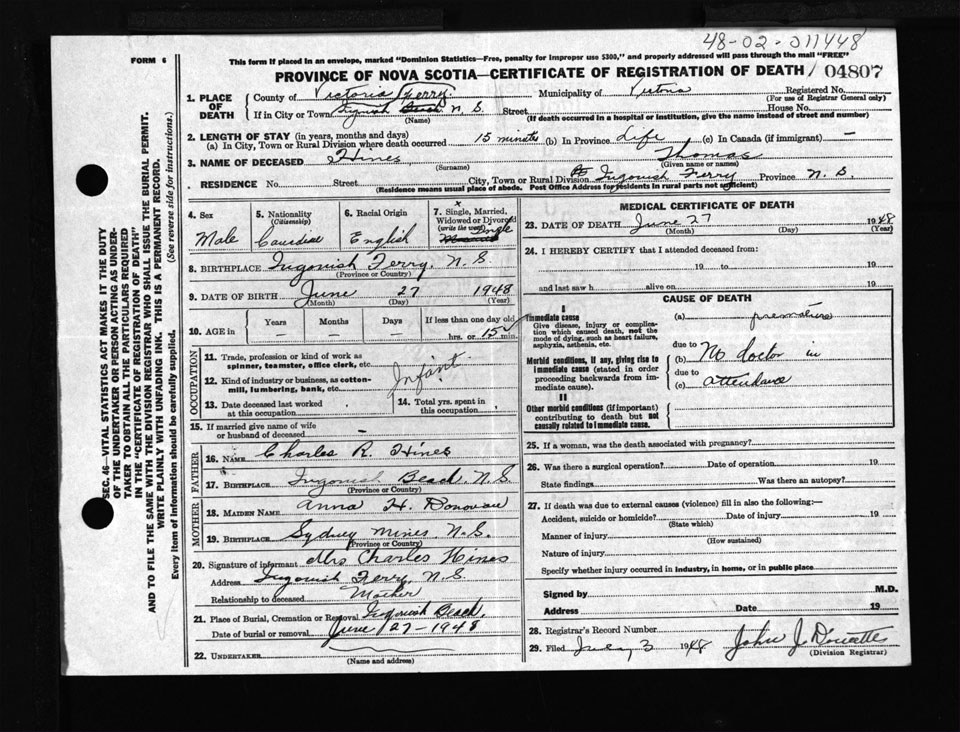 48-02-011448
FORM 6
This form if placed in an envelope, marked "Dominion Statistics—Free, penalty for improper use $300," and properly addressed will pass through the mail "FREE"
PROVINCE OF NOVA SCOTIA—CERTIFICATE OF REGISTRATION OF DEATH 04807
1. PLACE OF DEATH
County of Victoria Municipality of Victoria Registered No.
(For use of Registrar General only)
If in City or Town Ferry Beach N. S. Street House No.
(Name) (If death occurred in a hospital or institution, give the name instead of street and number)
2. LENGTH OF STAY (in years, months and days)
(a) In City, Town or Rural Division where death occurred 15 minutes (b) In Province Life (c) In Canada (if immigrant) —
3. NAME OF DECEASED Hines Thomas
(Surname) (Given name or names)
RESIDENCE No. Street City, Town or Rural Division Ingonish Ferry Province N. S.
(Residence means usual place of abode. Post Office Address for residents in rural parts not sufficient)
4. Sex
Male
5. Nationality (Citizenship)
Canadian
6. Racial Origin
English
7. Single, Married, Widowed or Divorced (write the word)
Single
8. BIRTHPLACE Ingonish Ferry, N. S.
(Province or Country)
9. DATE OF BIRTH June 27 1948
(Month) (Day) (Year)
10. AGE in Years Months Days If less than one day old
— — — hrs. or 15 min.
OCCUPATION
11. Trade, profession or kind of work as spinner, teamster, office clerk, etc.
Infant
12. Kind of industry or business, as cotton-mill, lumbering, bank, etc.
13. Date deceased last worked at this occupation
14. Total yrs. spent in this occupation
15. If married give name of wife or husband of deceased —
FATHER
16. NAME Charles R. Hines
17. BIRTHPLACE Ingonish Beach, N. S.
(Province or Country)
MOTHER
18. MAIDEN NAME Anna H. Donovan
19. BIRTHPLACE Sydney Mines N. S.
(Province or Country)
20. Signature of informant Mrs Charles Hines
Address Ingonish Ferry, N. S.
Relationship to deceased Mother
21. Place of Burial, Cremation or Removal Ingonish Beach,
Date of burial or removal June 27-1948
22. UNDERTAKER
(Name and address)
MEDICAL CERTIFICATE OF DEATH
23. DATE OF DEATH June 27 1948
(Month) (Day) (Year)
24. I HEREBY CERTIFY that I attended deceased from:
19 to 19
and last saw h alive on 19
CAUSE OF DEATH
I
Immediate cause
Give disease, injury or complication which caused death, not the mode of dying, such as heart failure, asphyxia, asthenia, etc.
(a) premature
due to
Morbid conditions, if any, giving rise to immediate cause (stated in order proceeding backwards from immediate cause).
(b) No doctor in
due to
(c) attendance
II
Other morbid conditions (if important) contributing to death but not causally related to immediate cause.
25. If a woman, was the death associated with pregnancy?
26. Was there a surgical operation? Date of operation 19
State findings Was there an autopsy?
27. If death was due to external causes (violence) fill in also the following:—
Accident, suicide or homicide? Date of injury 19
(State which)
Manner of injury
(How sustained)
Nature of injury
Specify whether injury occurred in industry, in home, or in public place
Signed by M.D.
Address Date 19
28. Registrar's Record Number
29. Filed July 3 1948 John J Doucette
(Division Registrar)
SEC. 46—VITAL STATISTICS ACT MAKES IT THE DUTY
OF THE UNDERTAKER OR PERSON ACTING AS UNDER-
TAKER TO OBTAIN ALL THE PARTICULARS REQUIRED
IN THE "CERTIFICATE OF REGISTRATION OF DEATH"
AND TO FILE THE SAME WITH THE DIVISION REGISTRAR WHO SHALL ISSUE THE BURIAL PERMIT.
WRITE PLAINLY WITH UNFADING INK. THIS IS A PERMANENT RECORD.
Every item of information should be carefully supplied. (See reverse side for instructions.)